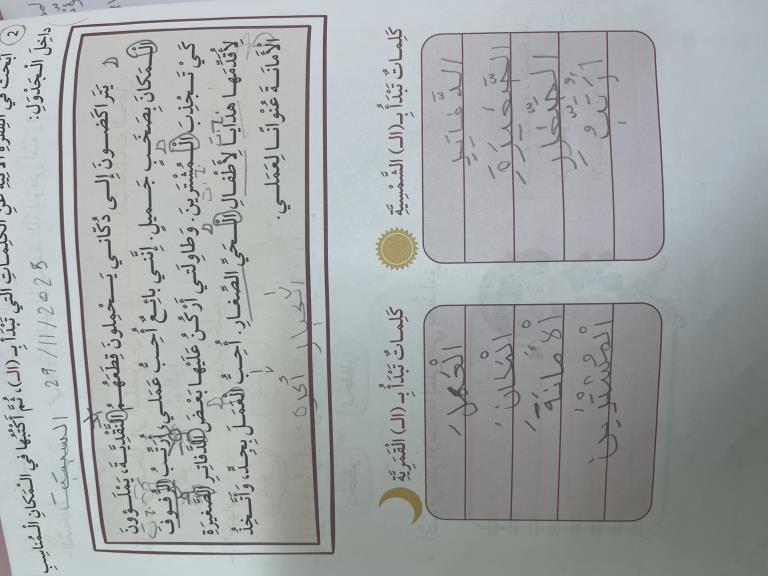 2 أبحث في الفقرة الآتية عن الكلمات التي تبدأ بـ(الـ)، ثم أكتبها في المكان المناسب
داخل الجدول:
السبت 29/11/2025
يتراكضون إلى دكاني يحملون قطعهم النقدية، يملؤون
المكان بصخب جميل. إنني بائع أحب عملي، أرتب الرفوف
كي تجذب المشترين. وطاولتي أركن عليها بعض الدفاتر الصغيرة
لأقدمها هدايا لأطفال الحي الصغار. أحب العمل بجد، وأتخذ
الأمانة عنوانا لعملي.
كلمات تبدأ بـ(الـ) القمرية
العمل
المكان
الأمانة
المشترين
كلمات تبدأ بـ(الـ) الشمسية
الدفاتر
الصغيرة
الصغار